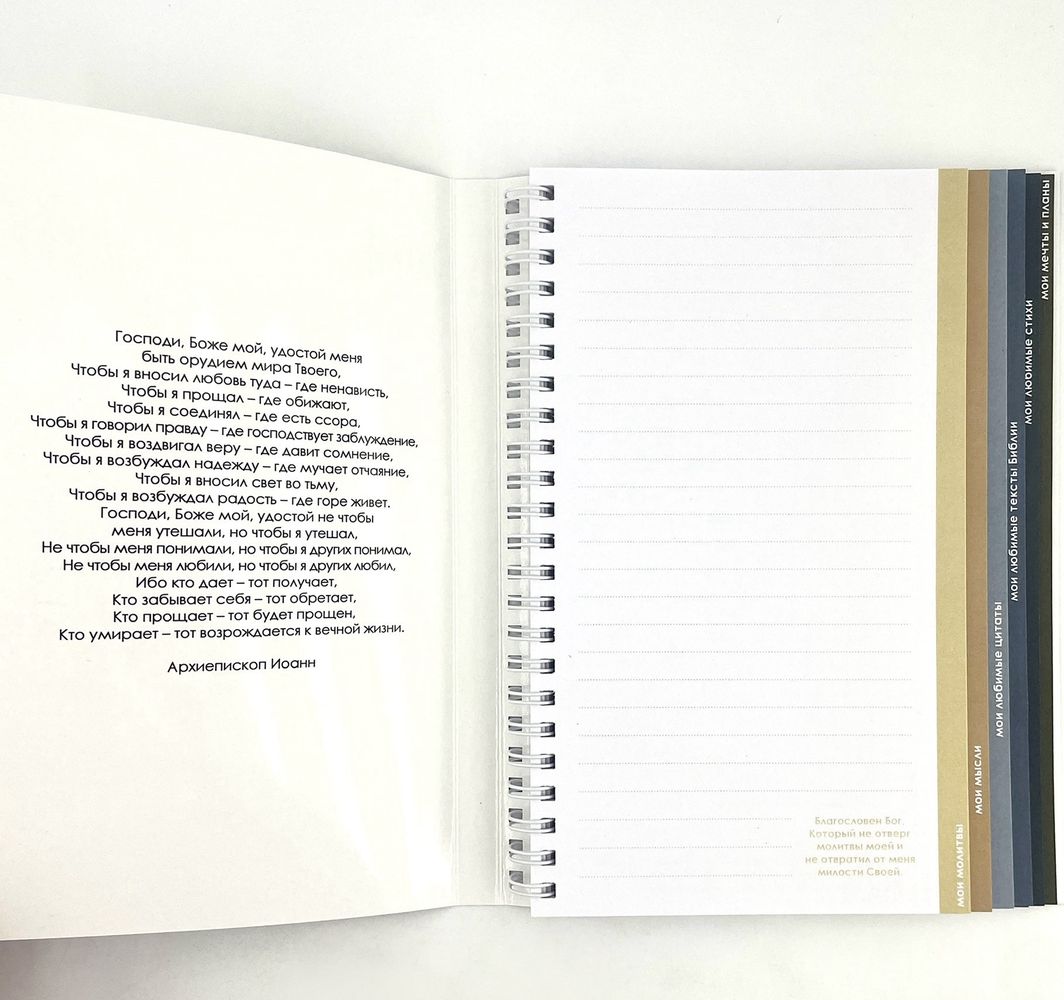 Господи, Боже мой, удостой меня
быть орудием мира Твоего,
Чтобы я вносил любовь туда – где ненависть,
Чтобы я прощал – где обижают,
Чтобы я соединял – где есть ссора,
Чтобы я говорил правду – где господствует заблуждение,
Чтобы я воздвигал веру – где давит сомнение,
Чтобы я возбуждал надежду – где мучает отчаяние,
Чтобы я вносил свет во тьму,
Чтобы я возбуждал радость – где горе живет.
Господи, Боже мой, удостой не чтобы
меня утешали, но чтобы я утешал,
Не чтобы меня понимали, но чтобы я других понимал,
Не чтобы меня любили, но чтобы я других любил,
Ибо кто дает – тот получает,
Кто забывает себя – тот обретает,
Кто прощает – тот будет прощен,
Кто умирает – тот возрождается к вечной жизни.
Архиепископ Иоанн
Благословен Бог,
Который не отверг
молитвы моей и
не отвратил от меня
милости Своей.
мои молитвы
мои мысли
мои любимые цитаты
мои любимые тексты Библии
мои любимые стихи
мои мечты и планы